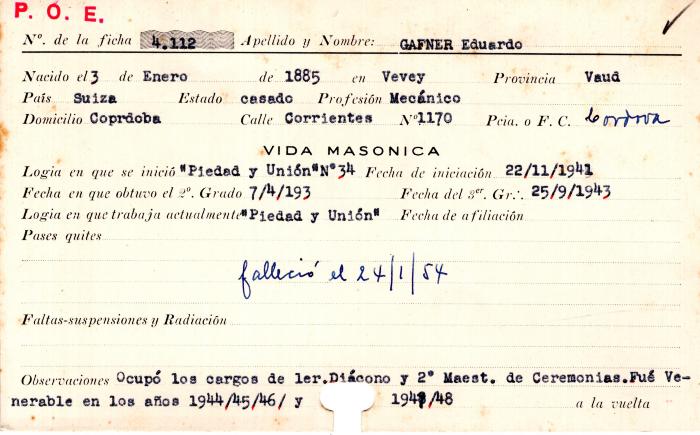 P. O. E.
Nº. de la ficha 4.112 Apellido y Nombre: GAFNER Eduardo
Nacido el 3 de Enero de 1885 en Vevey Provincia Vaud
País Suiza Estado casado Profesión Mecánico
Domicilio Coprdoba Calle Corrientes Nº 1170 Pcia. o F. C. Cordova
VIDA MASONICA
Logia en que se inició "Piedad y Unión" Nº 34 Fecha de iniciación 22/11/1941
Fecha en que obtuvo el 2º. Grado 7/4/193 Fecha del 3er. Gr.: 25/9/1943
Logia en que trabaja actualmente "Piedad y Unión" Fecha de afiliación
Pases quites
falleció el 24/1/54
Faltas-suspensiones y Radiación
Observaciones Ocupó los cargos de 1er. Diácono y 2º Maest. de Ceremonias. Fué Ve-
nerable en los años 1944/45/46/ y 1947/48 a la vuelta